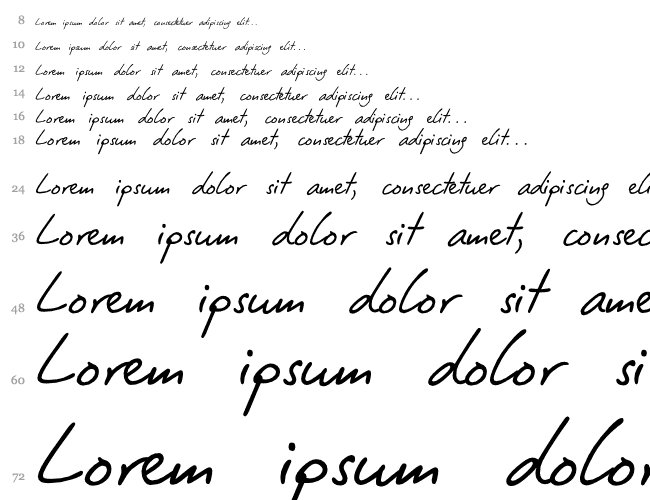 8 Lorem ipsum dolor sit amet, consectetuer adipiscing elit...
10 Lorem ipsum dolor sit amet, consectetuer adipiscing elit...
12 Lorem ipsum dolor sit amet, consectetuer adipiscing elit...
14 Lorem ipsum dolor sit amet, consectetuer adipiscing elit...
16 Lorem ipsum dolor sit amet, consectetuer adipiscing elit...
18 Lorem ipsum dolor sit amet, consectetuer adipiscing elit...
24 Lorem ipsum dolor sit amet, consectetuer adipiscing eli
36 Lorem ipsum dolor sit amet, consec
48 Lorem ipsum dolor sit ame
60 Lorem ipsum dolor si
72 Lorem ipsum dolo